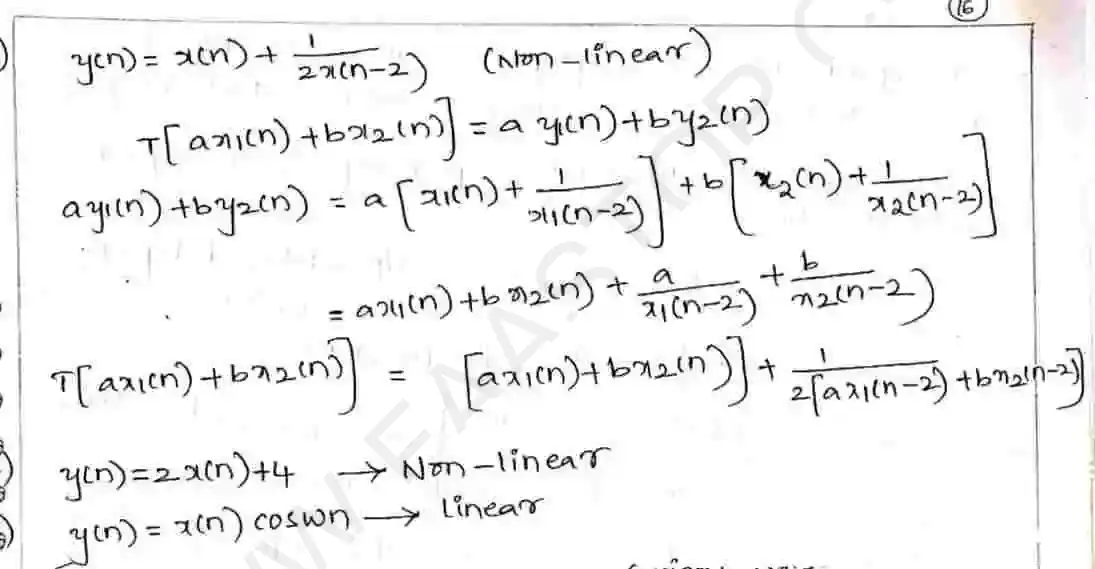 16
y(n) = x(n) + 1/2x(n-2) (Non-linear)
T[ax1(n) + bx2(n)] = a y1(n) + by2(n)
ay1(n) + by2(n) = a[x1(n) + 1/x1(n-2)] + b[x2(n) + 1/x2(n-2)]
= ax1(n) + bx2(n) + a/x1(n-2) + b/x2(n-2)
T[ax1(n) + bx2(n)] = [ax1(n) + bx2(n)] + 1/2[ax1(n-2) + bx2(n-2)]
y(n) = 2x(n) + 4 → Non-linear
y(n) = x(n) coswn → Linear